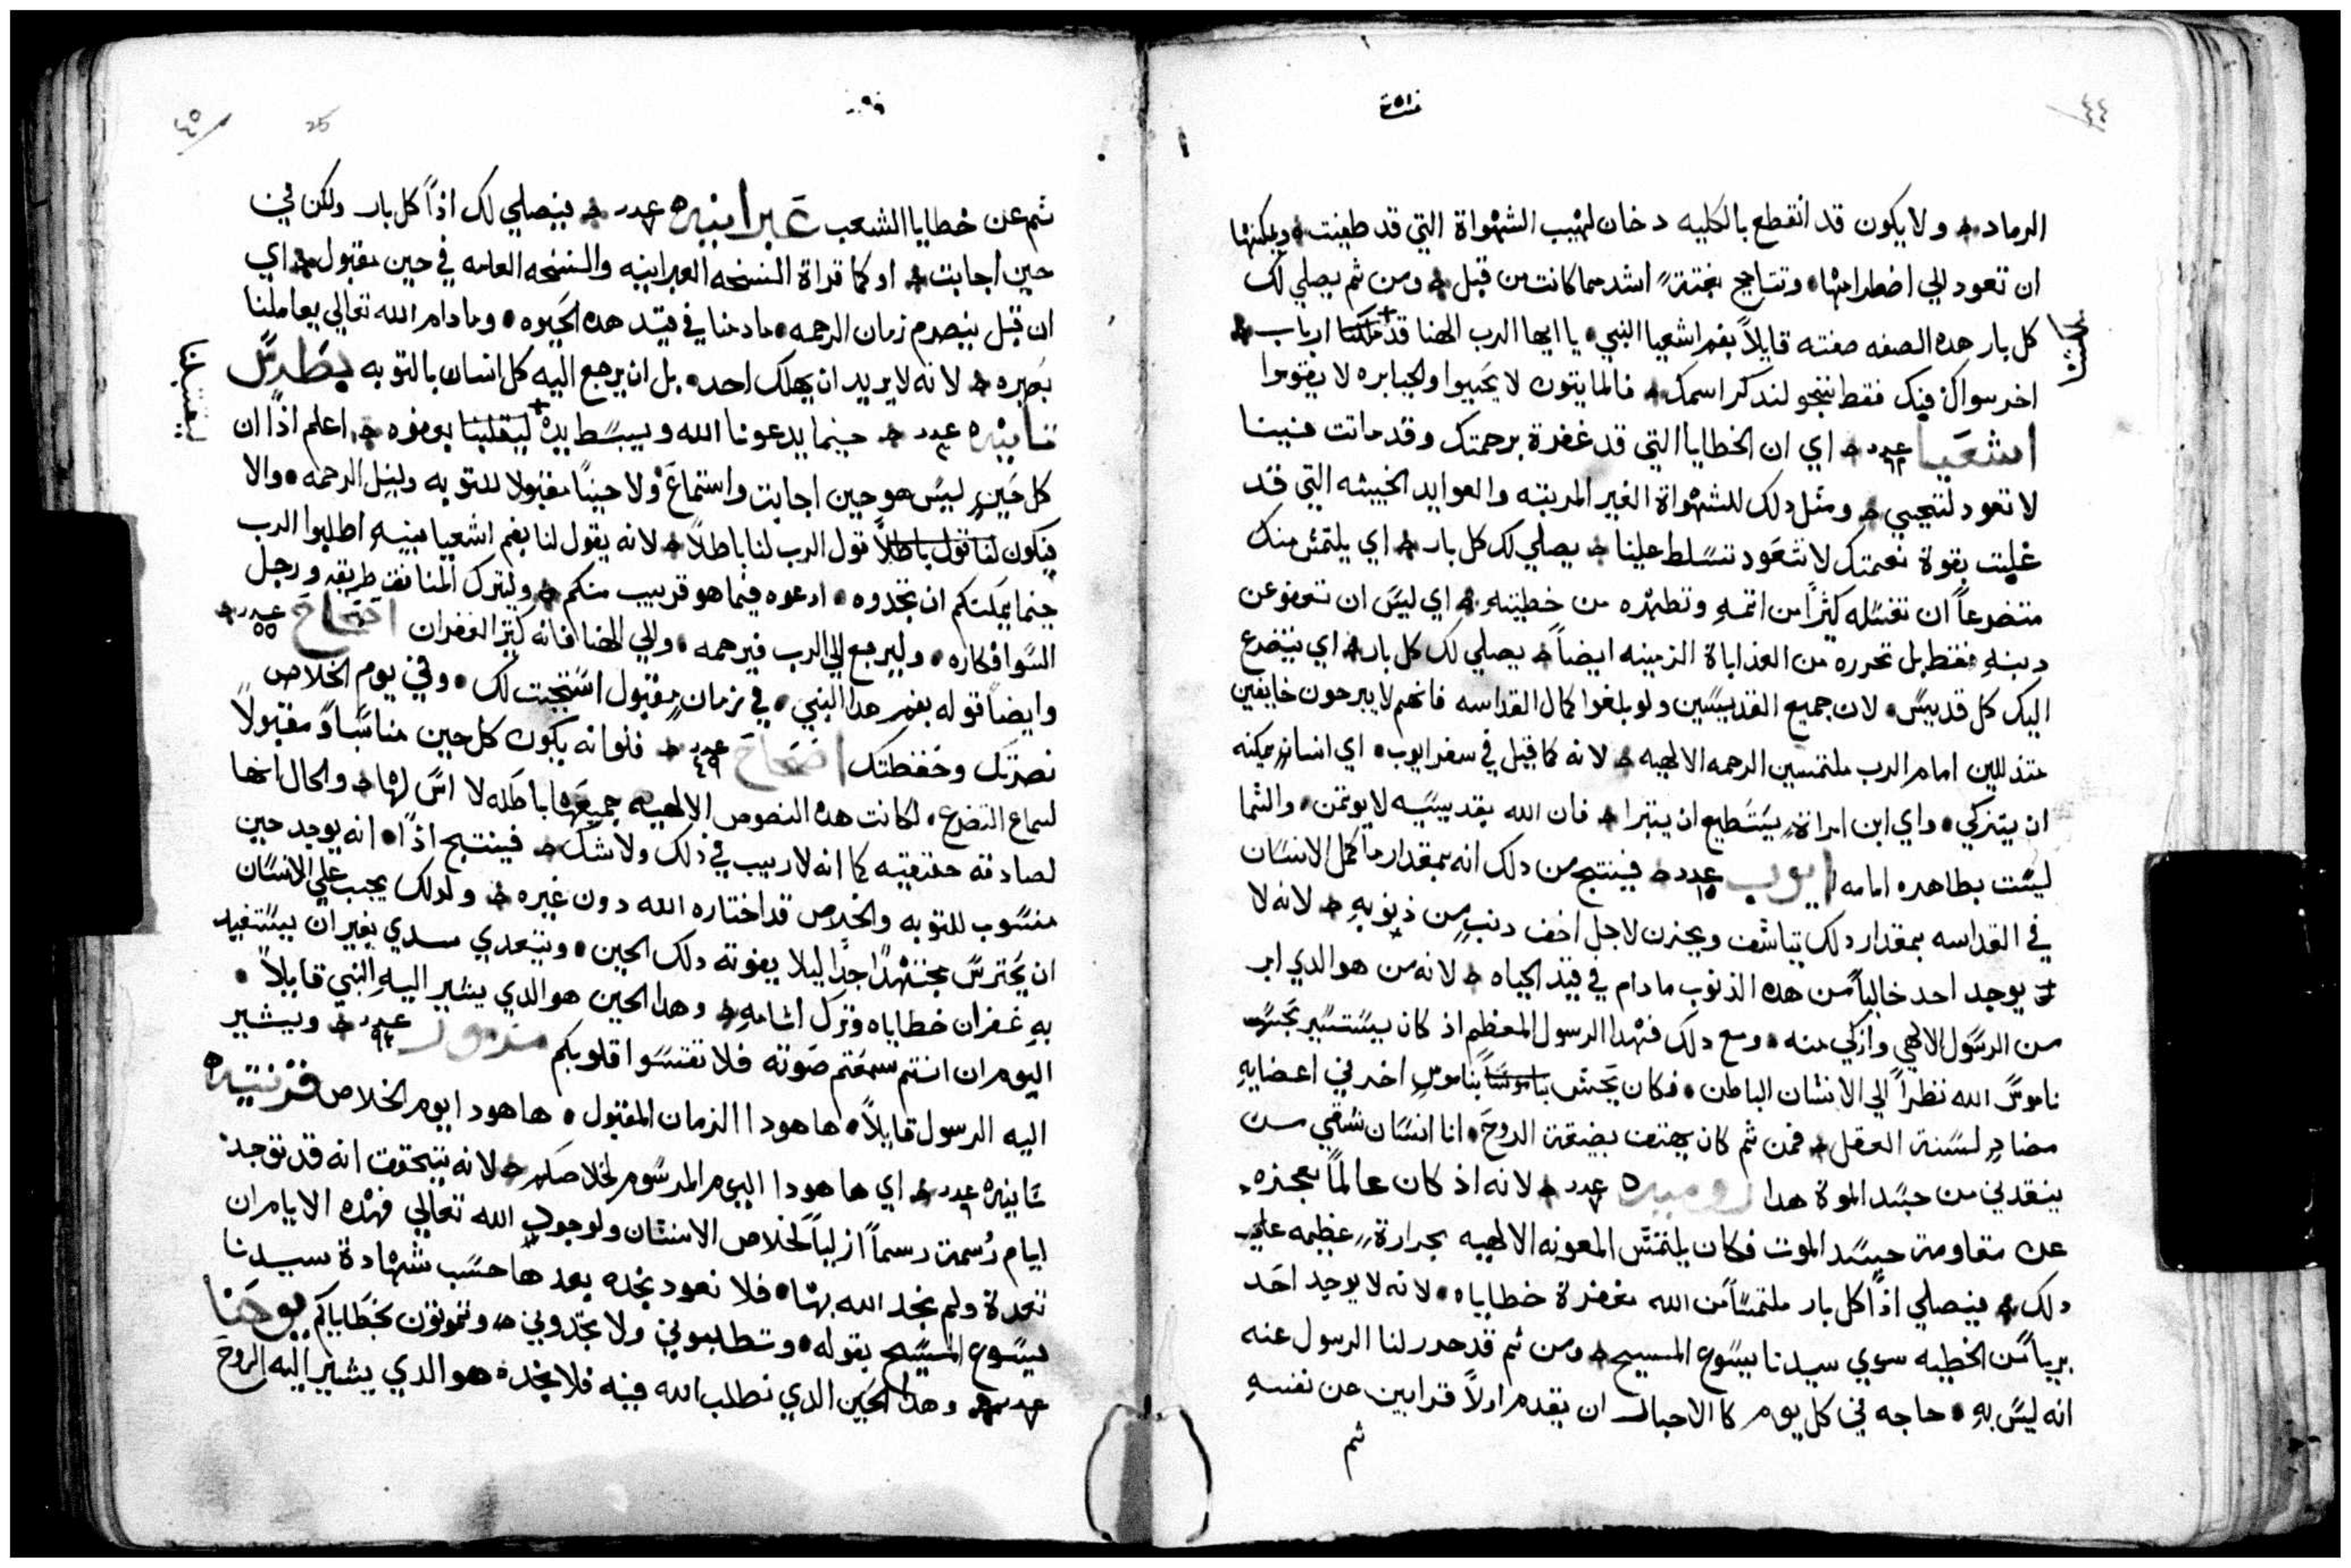 ٤٤
الرماد ولا يكون قد انقطع بالكليه دخان لهيب الشهواة التي قد طفيت ويمكنها
ان تعود الي اضطرامها وتتاجج بغتةً اشد مما كانت من قبل ومن ثم يصلي لك
كل بار هده الصفه صفته قايلاً بفم اشعيا النبي يا ايها الرب الهنا قد ملكنا ارباب
اخر سواك فيك فقط ننجو لندكر اسمك فالمايتون لا يحييوا والجبابره لا يقوموا
اشعيا عدد ٢٦ اي ان الخطايا التي قد غفرة برحمتك وقد ماتت فينا
لا تعود لتحيي ومثل دلك للشهواة الغير المرتبه والعوايد الخبيثه التي قد
غلبت بقوة نعمتك لا تعود تتسلط علينا يصلي لك كل بار اي يلتمس منك
متضرعاً ان تغسله كثراً من اتمهِ وتطهره من خطيته اي ليس ان تعفو عن
دنبهِ فقط بل تحرره من العداباة الزمنيه ايضاً يصلي لك كل بار اي يتضرع
اليك كل قديس لان جميع القديسين ولو بلغوا كمال القداسه فانهم لا يبرحون خايفين
متدللين امام الرب ملتمسين الرحمه الالهيه لانه كما قيل في سفر ايوب اي انسانٍ يمكنه
ان يتزكي واي ابن امراةٍ يستطيع ان يتبرا فان الله بقديسيه لا يوتمن والسما
ليست بطاهره امامه ايوب عدد ١٥ فينتج من دلك انه بمقدار ما كمل الانسان
في القداسه بمقدار دلك يتاسف ويحزن لاجل اخف دنبٍ من ذنوبهِ لانه لا
يوجد احد خالياً من هده الذنوب ما دام في قيد الحياه لانه من هو الدي ابر
من الرسول الالهي وازكي منه ومع دلك فهدا الرسول المعظم اذ كان يستسير بحسب
ناموس الله نظراً الي الانسان الباطن فكان يحس بناموسٍ اخر في اعضايهِ
مضادٍ لسنة العقل فمن ثم كان يهتف بضيقة الروح انا انسان شقي من
ينقدني من جسد الموة هدا روميه عدد ٧ لانه اذ كان عالماً بعجزه
عن مقاومة جسد الموت فكان يلتمس المعونه الالهيه بحرارةٍ عظيمه علي
دلك فيصلي اذاً كل بار ملتمساً من الله مغفرة خطاياه لانه لا يوجد احد
برياً من الخطيه سوي سيدنا يسوع المسيح ومن ثم قد حرر لنا الرسول عنه
انه ليس بهِ حاجه في كل يوم كالاحبار ان يقدم اولاً قرابين عن نفسهِ
ثم
٤٥
25
ثم عن خطايا الشعب عبرانيه عدد ٧ فيصلي لك اذاً كل بار ولكن في
حين اجابت او كما قراة النسخه العبرانيه والنسخه العامه في حين مقبول اي
ان قبل ينصرم زمان الرحمه ما دمنا في قيد هده الحيوه وما دام الله تعالي يعاملنا
بصبره لانه لا يريد ان يهلك احد بل ان يرجع اليه كل انسان بالتوبه بطرس
تانيه عدد ٣ حينما يدعونا الله ويبسط يده ليقبلنا بوفوه اعلم اذاً ان
كل حينٍ ليس هو حين اجابت واستماع ولا حيناً مقبولا للتوبه ولنيل الرحمه والا
فيكون قول الرب لنا باطلاً لانه يقول لنا بفم اشعيا نبيهِ اطلبوا الرب
حينما يمكنكم ان تجدوه ادعوه فيما هو قريب منكم وليترك المنافق طريقه ورجل
السوا فكاره وليرجع الي الرب فيرحمه والي الهنا فانه كثير الغفران اصحاح عدد ٥٥
وايضاً قوله بفم هدا النبي في زمانٍ مقبول استجبت لك وفي يوم الخلاص
نصرتك وحفظتك اصحاح عدد ٤٩ فلو انه يكون كل حين مناسباً ومقبولاً
لسماع التضرع لكانت هده النصوص الالهيه جميعها باطله لا اس لها والحال انها
لصادقه حقيقيه كما انه لا ريب في ذلك ولا شك فينتج اذاً انه يوجد حين
منسوب للتوبه والخلاص قد اختاره الله دون غيره ولدلك يجب علي الانسان
ان يحترس مجتهداً جداً ليلا يفوته دلك الحين ويتعدي سدي بغير ان يستفيد
بهِ غفران خطاياه وترك اثامهِ وهدا الحين هو الدي يشير اليهِ النبي قايلاً
اليوم ان انتم سمعتم صوته فلا تقسوا قلوبكم مزمور عدد ٩٤ ويشير
اليه الرسول قايلاً ها هودا الزمان المقبول ها هودا يوم الخلاص قرنتيه
تانيه عدد ٦ اي ها هودا اليوم المرسوم لخلاصكم لانه يتحقق انه قد توجد
ايام رُسمة رسماً ازلياً لخلاص الانسان ولوجود الله تعالي فهده الايام ان
تعدة ولم نجد الله بها فلا نعود نجده بعدها حسب شهادة سيدنا
يسوع المسيح بقوله وتطلبوني ولا تجدوني وتموتون بخطاياكم يوحنا
عدد ٨ وهدا الحين الدي نطلب الله فيه فلا نجده هو الدي يشير اليه الروح